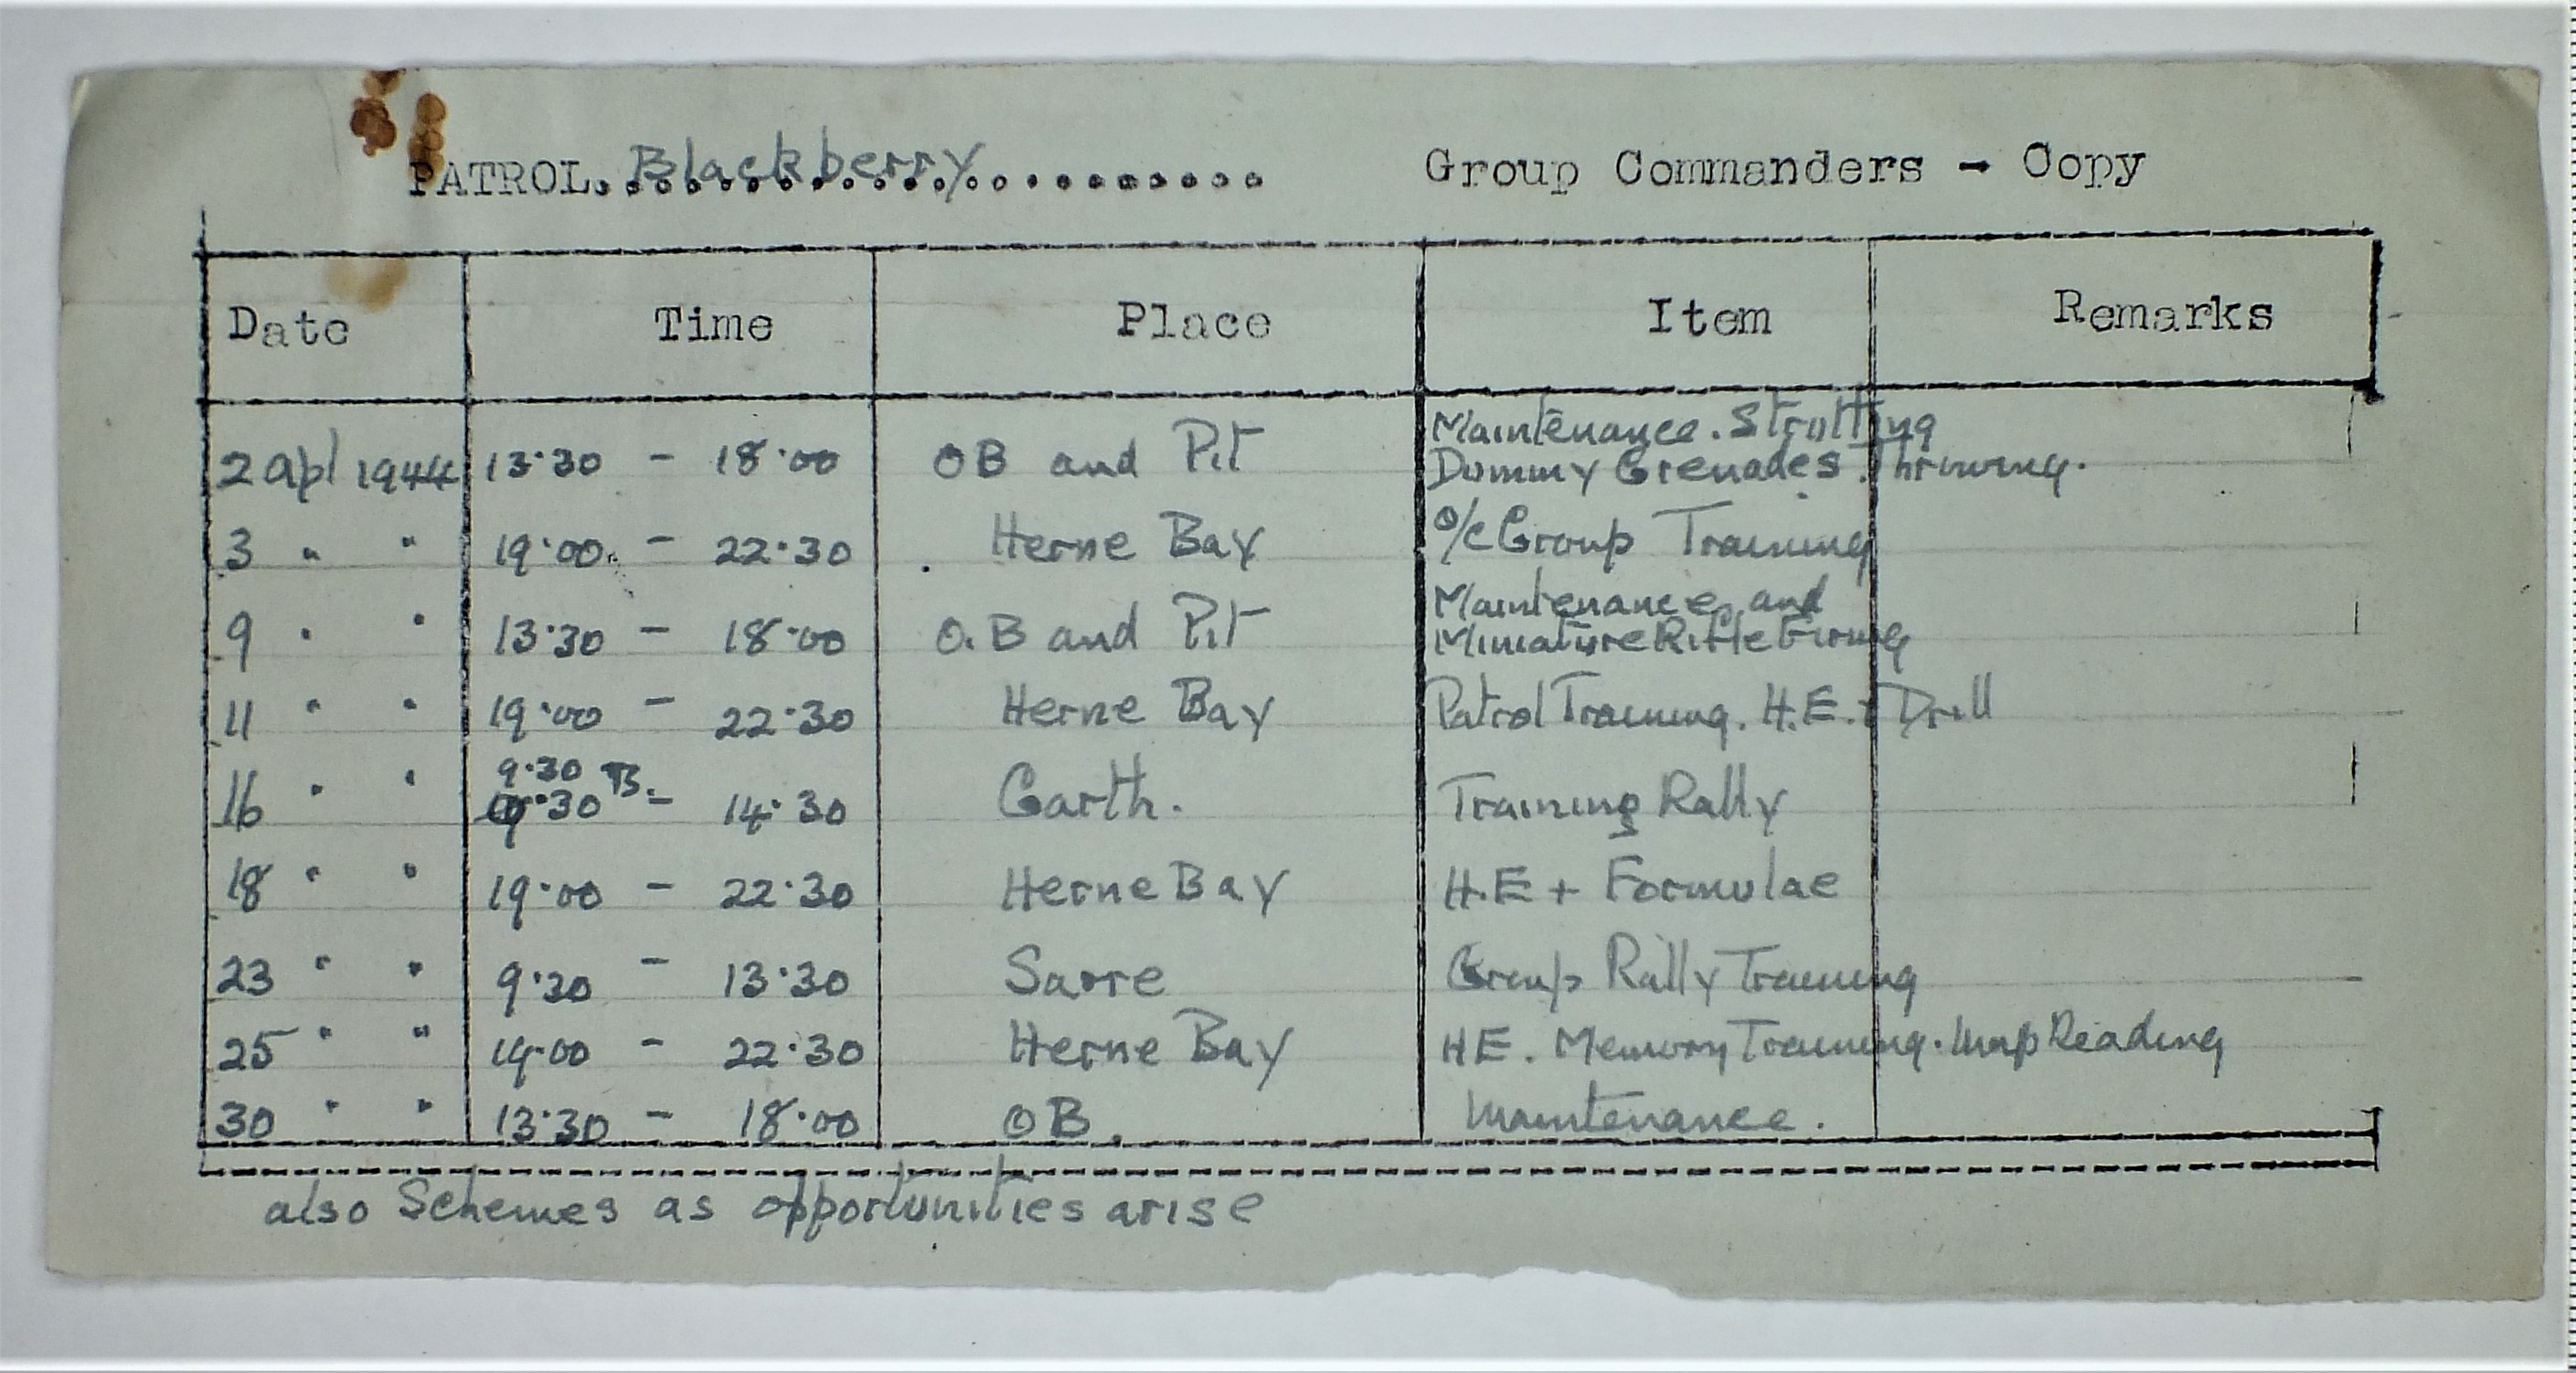 PATROL. Blackberry.......... Group Commanders - Copy
Date Time Place Item Remarks
Maintenance. Strutting
2 Apl 1944 13·30 - 18·00 OB and Pit Dummy Grenades. Throwing.
3 " " 19·00 - 22·30 Herne Bay O/C Group Training
Maintenance and
9 " " 13·30 - 18·00 O.B and Pit Miniature Rifle Firing
11 " " 19·00 - 22·30 Herne Bay Patrol Training. H.E. + Drill
9·30 TB.
16 " " ·30 - 14·30 Garth. Training Rally
18 " " 19·00 - 22·30 Herne Bay H.E + Formulae
23 " " 9·30 - 13·30 Sarre Group Rally Training
25 " " 19·00 - 22·30 Herne Bay HE. Memory Training. Map Reading
30 " " 13·30 - 18·00 OB. Maintenance.
also Schemes as opportunities arise